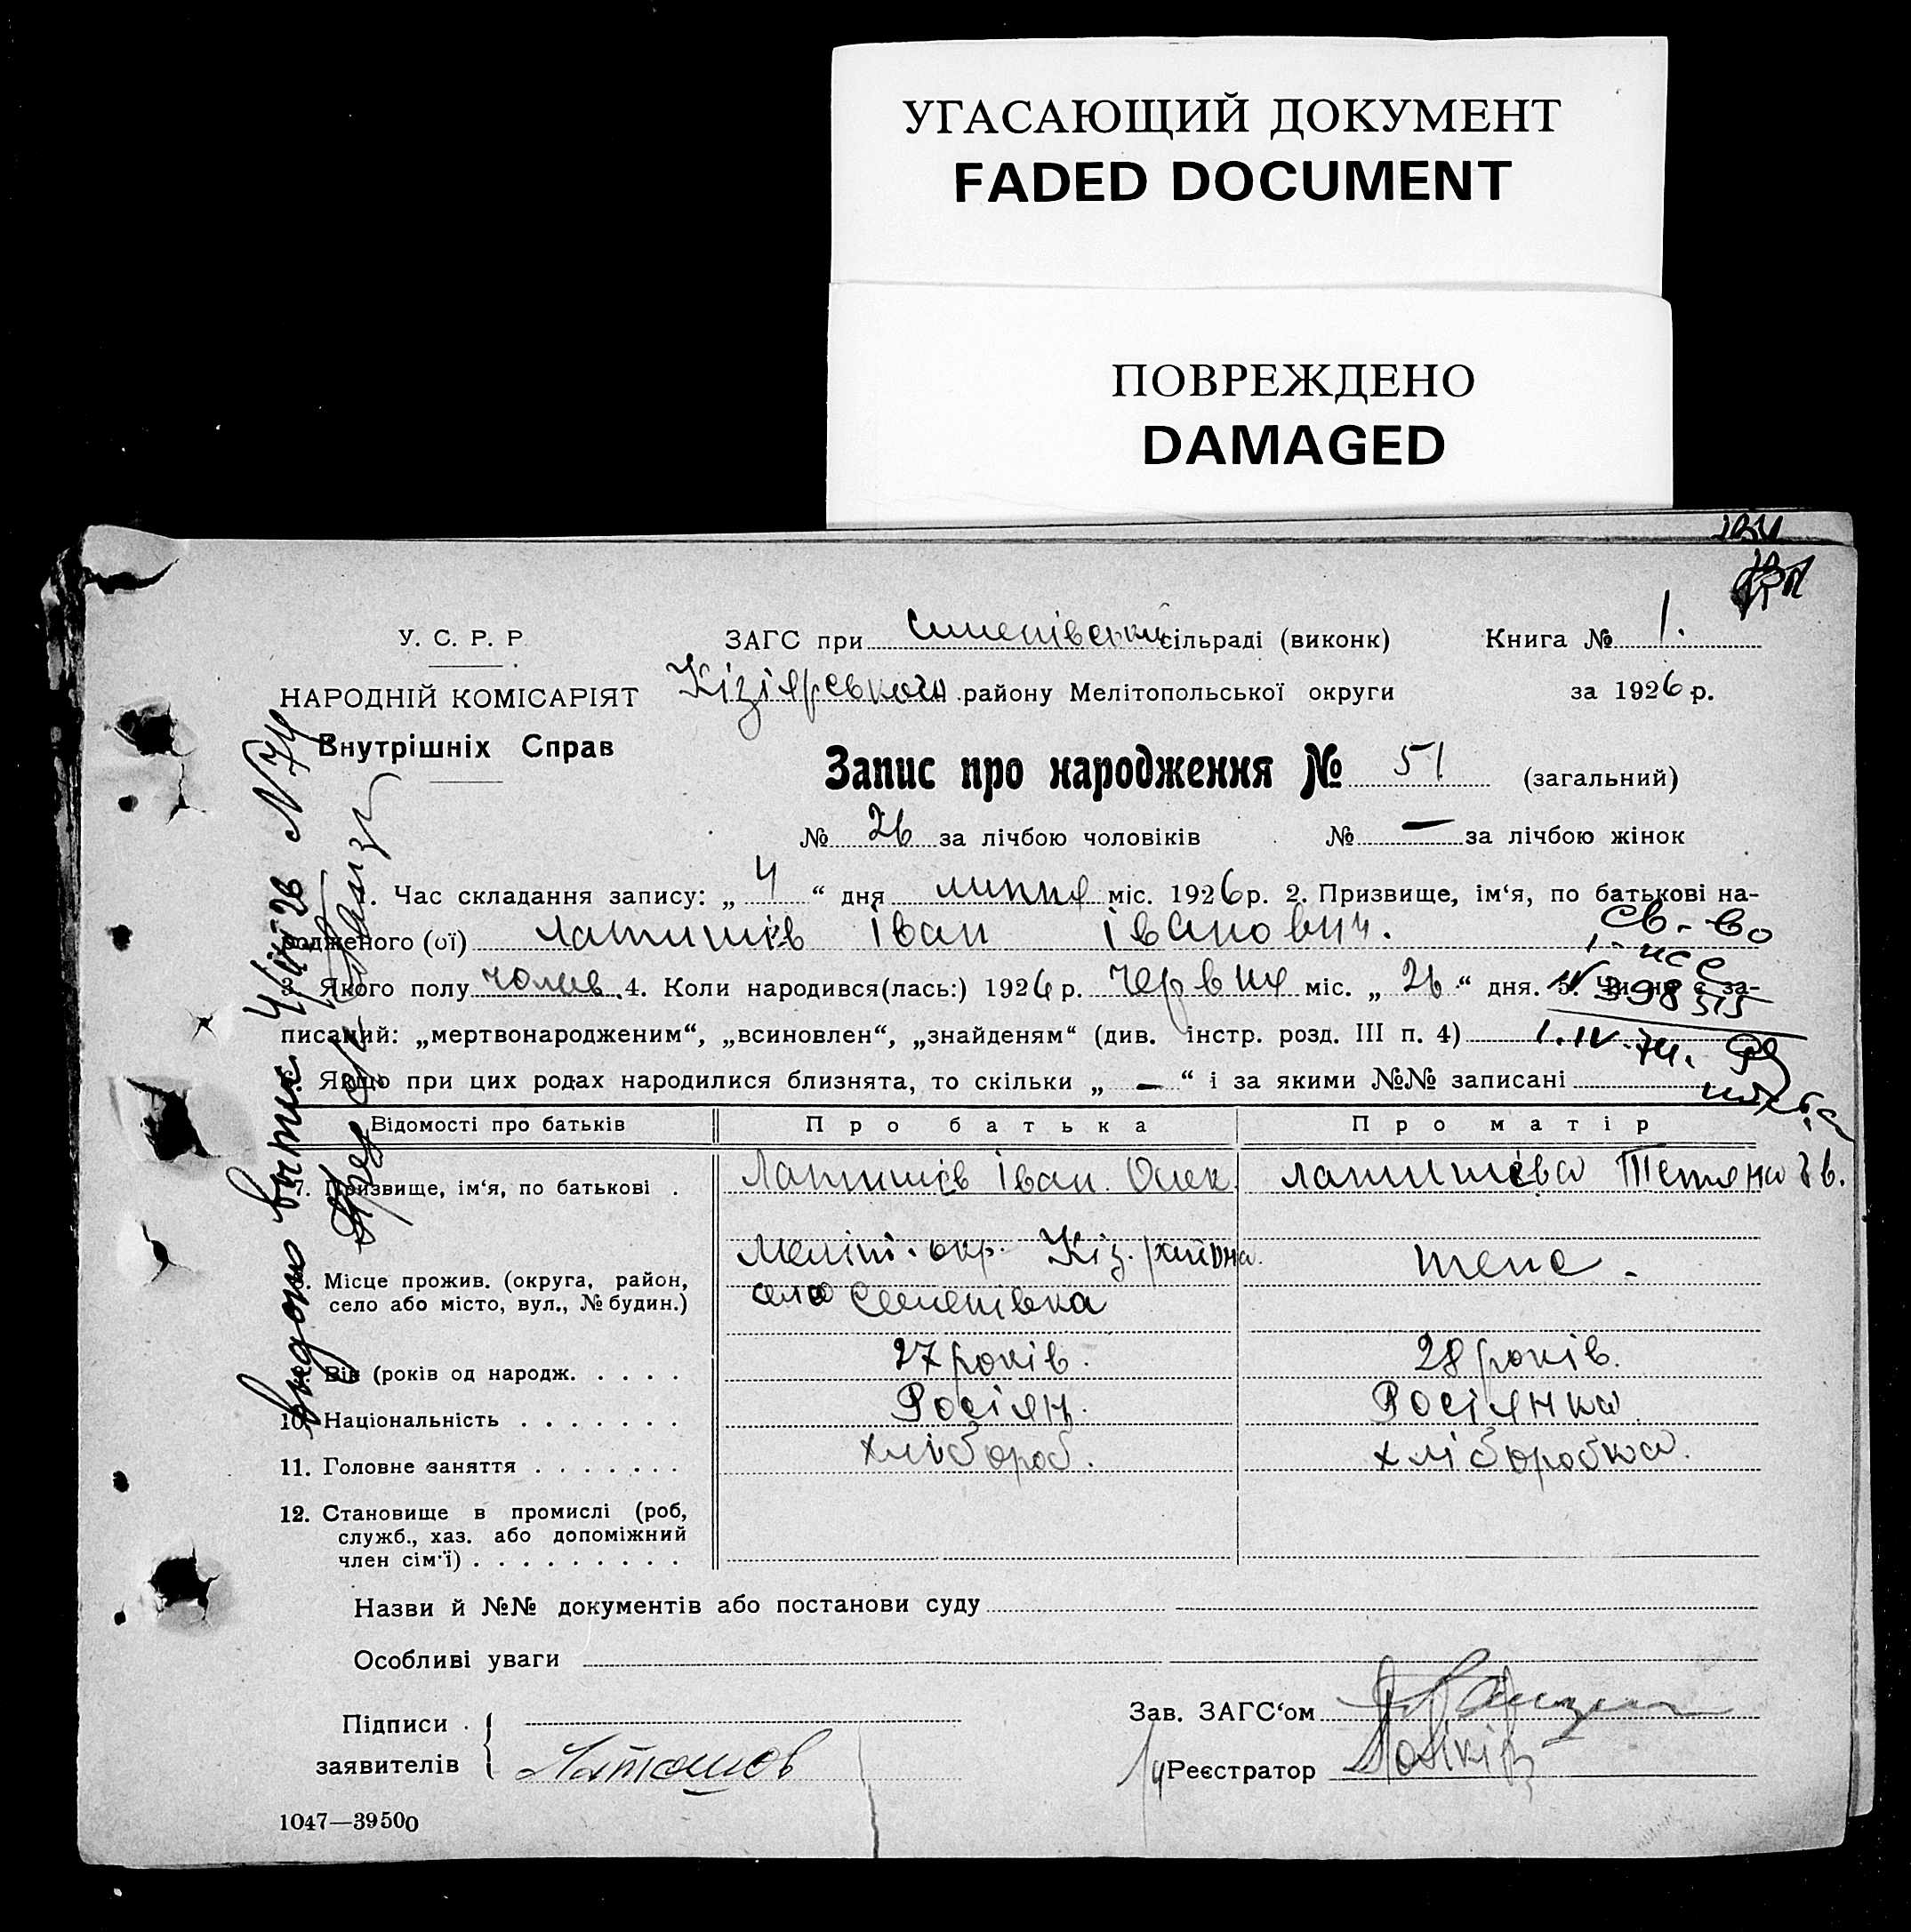 УГАСАЮЩИЙ ДОКУМЕНТ
FADED DOCUMENT
ПОВРЕЖДЕНО
DAMAGED
У. С. Р. Р.
НАРОДНІЙ КОМІСАРІЯТ
Внутрішніх Справ
ЗАГС при сільраді (виконк) Книга № 1.
Кізіярського району Мелітопольської округи за 1926 р.
Запис про народження № 51 (загальний)
№ 26 за лічбою чоловіків № — за лічбою жінок
1. Час складання запису: „ 4 “ дня липня міс. 1926 р. 2. Призвище, ім‘я, по батькові на-
родженого (ої) Латишів Іван Іванович.
Св-во
3. Якого полу чолов. 4. Коли народився(лась:) 1926 р. червня міс. „ 26 “ дня. 5. Чи не є за-
398515
писаний: „мертвонародженим“, „всиновлен“, „знайденям“ (див. інстр. розд. III п. 4)
1.IV.74.
Якщо при цих родах народилися близнята, то скільки „ — “ і за якими №№ записані
Відомості про батьків Про батька Про матір
7. Призвище, ім‘я, по батькові . Латишів Іван. Олек. Латишева Тетяна Ів.
Меліт. окр. Кіз. району.
Місце прожив. (округа, район, теж.
село або місто, вул., № будин.) село Семенівка
Вік (років од народж. . . . . 27 років. 28 років.
10. Національність . . . . . . . Росіян. Росіянка.
11. Головне заняття . . . . . . . хлібороб. хліборобка.
12. Становище в промислі (роб,
служб., хаз. або допоміжний
член сім‘ї) . . . . . . . . .
Назви й №№ документів або постанови суду
Особливі уваги
Підписи
заявителів
Латышов
Зав. ЗАГС‘ом
Реєстратор
1047—39500
Видано витяг 4/VII 26 N 74